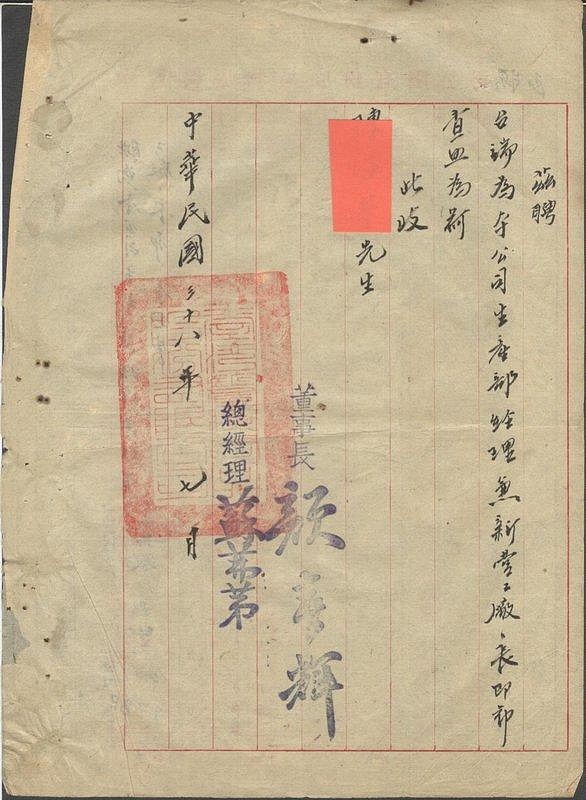 茲聘
台端為本公司生產部經理兼新營工廠長即
查照為荷
此致
先生
董事長 顏春輝
總經理
中華民國三十八年七月